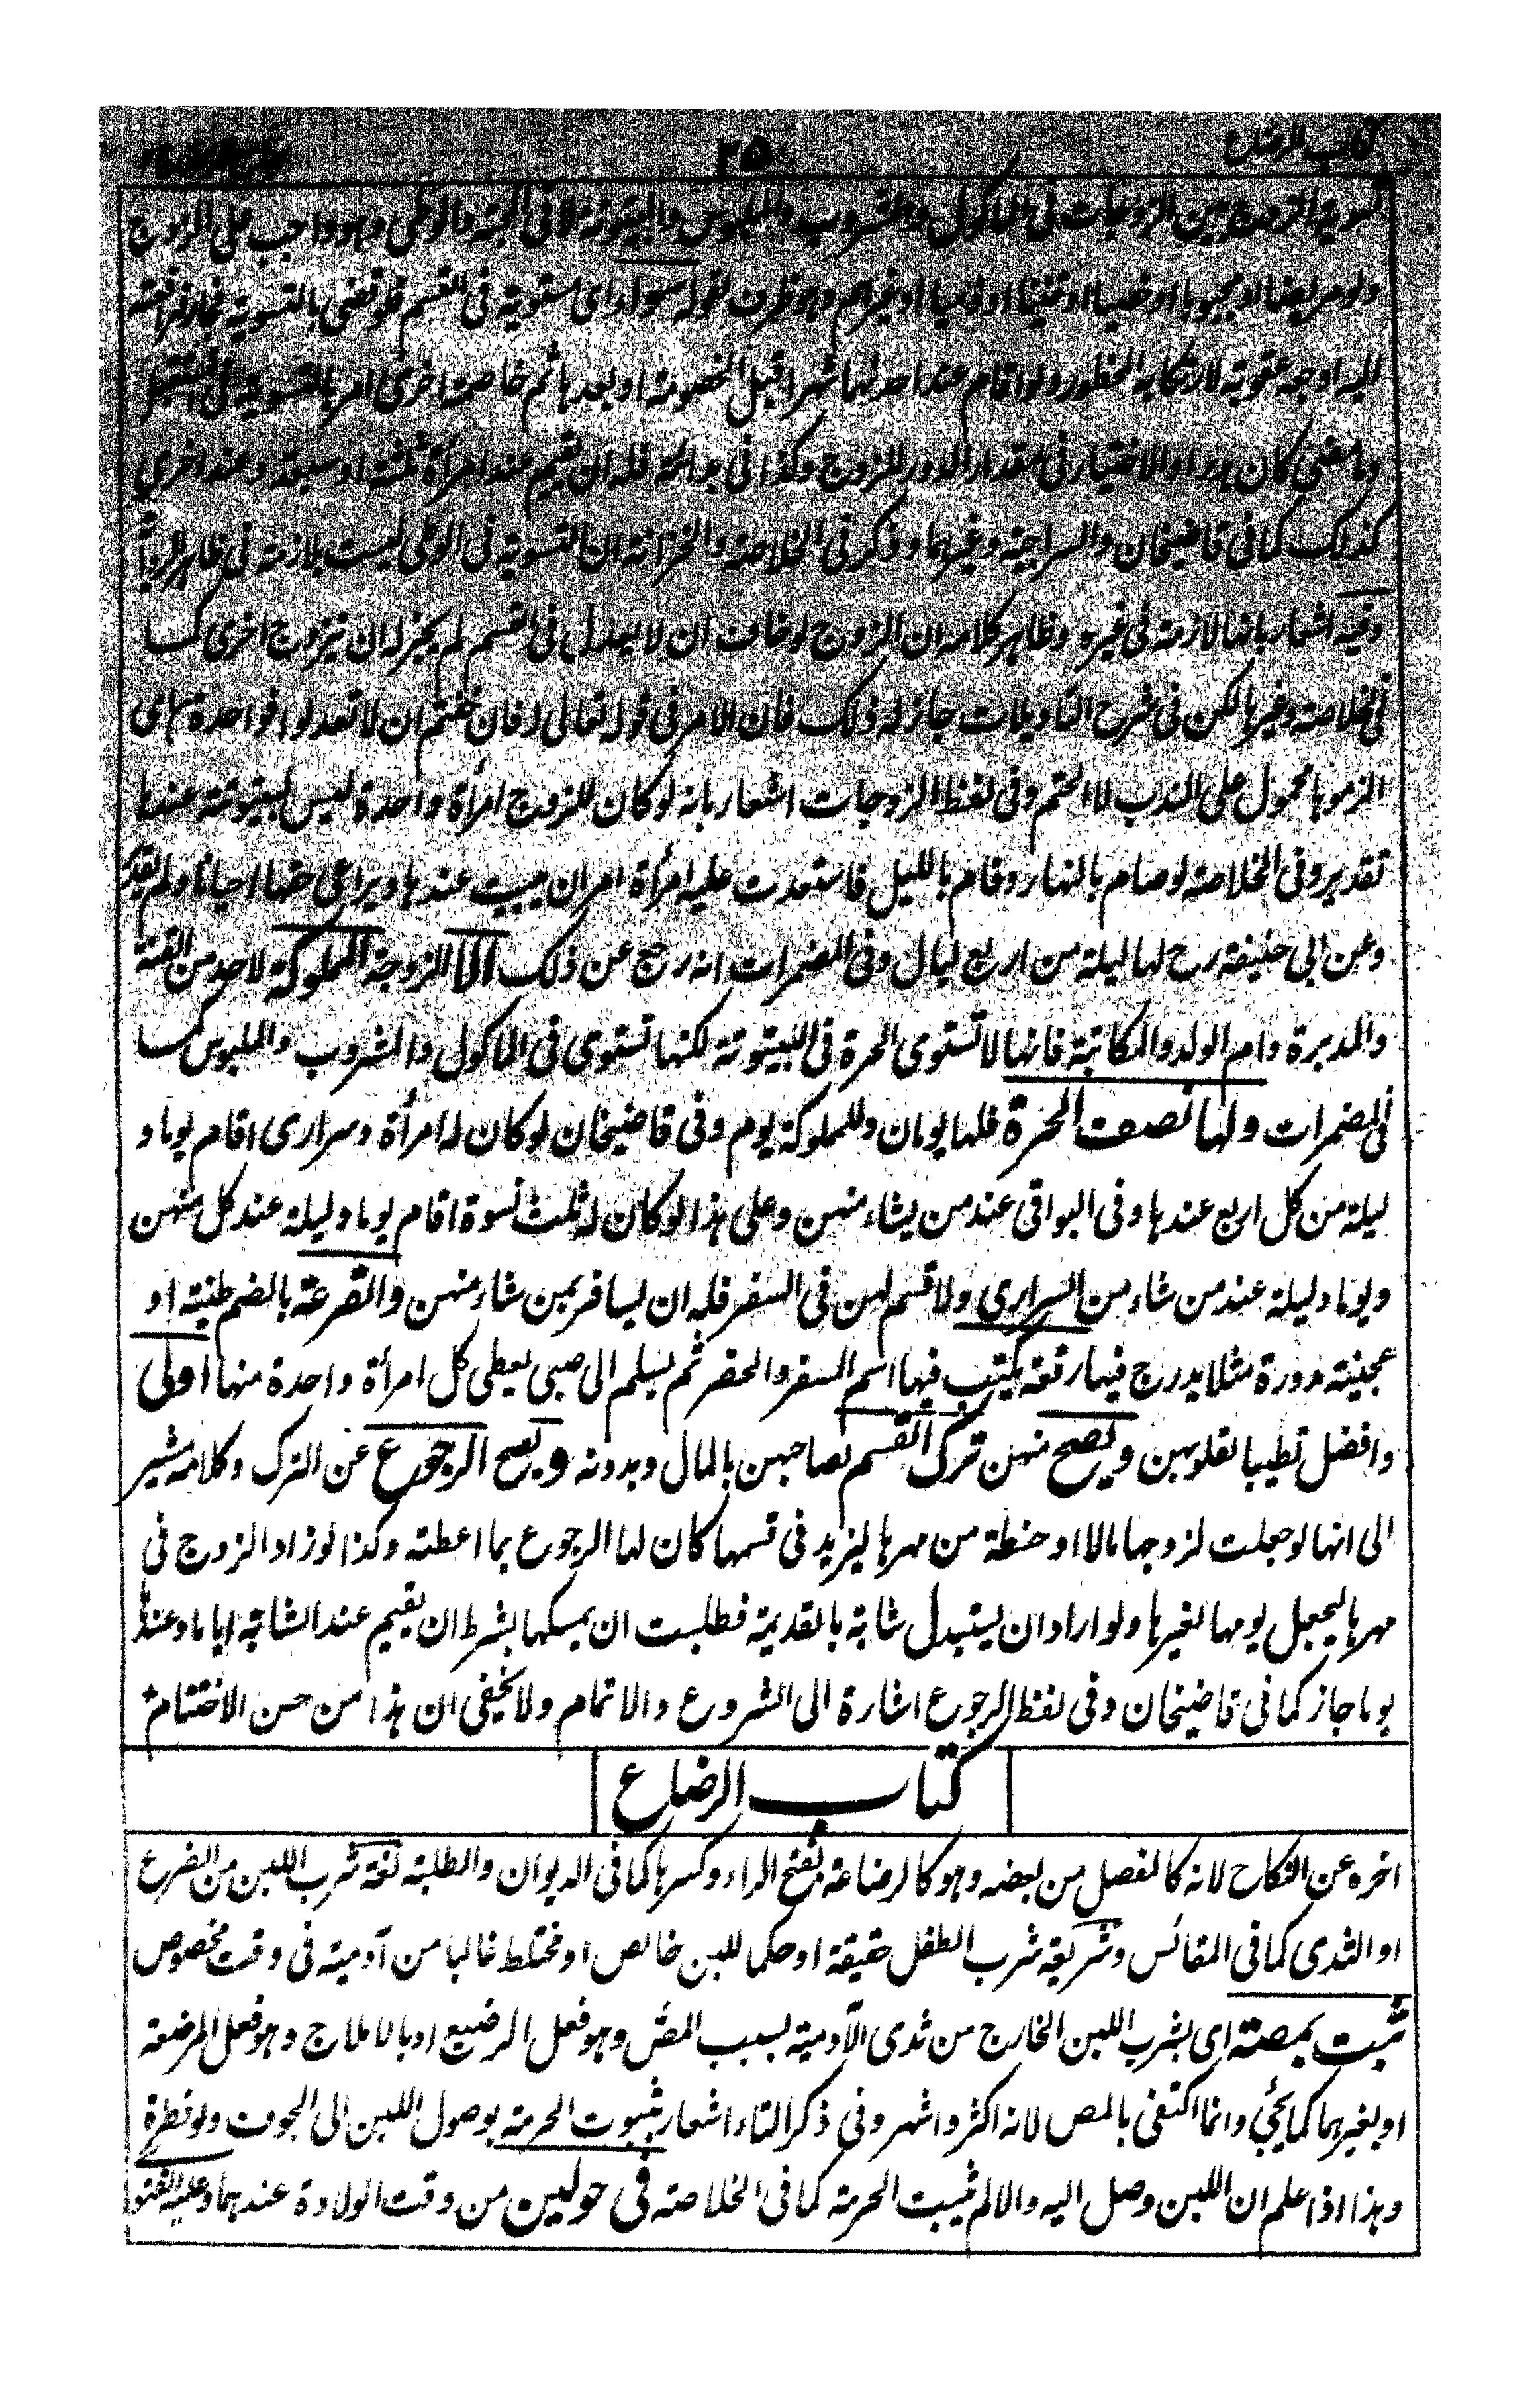 كتاب الرضاع
٢٥
تسوية الزوج بين الزوجات فى المأكول والمشروب والملبوس والبيتوتة لا فى المحبة والوطى وهو واجب على الزوج
ولو مريضا او مجبوبا او خصيا او عنينا او ذميا او غيرهم وهو ظرف لقوله سواء اى مستوية فى القسم فلو قضى بالتسوية فجار فرافعته
اليه اوجعه عقوبة لارتكابه المحظور ولو اقام عند احدٰهما شهرا قبل الخصومة او بعدها ثم خاصمه اخرى امر بالتسوية فى المستقبل
وما مضى كان هدرا والاختيار فى مقدار الدور للزوج وكذا فى بدائه فله ان يقيم عند امرأة ثلثة او سبعة وعند اخرى
كذلك كما فى قاضيخان والسراجية وغيرهما وذكر فى الخلاصة والخزانة ان التسوية فى الوطى ليست بلازمة فى ظاهر الرواية
وفيه اشعار بانها لازمة فى غيره وظاهر كلامه ان الزوج لو خاف ان لا يعدل فى القسم لم يجز له ان يتزوج اخرى كما
فى الخلاصة وغيرها لكن فى شرح التاويلات جاز له ذلك فان الامر فى قوله تعالى فان خفتم ان لا تعدلوا فواحدة اى
الزموها محمول على الندب لا الحتم وفى لفظ الزوجات اشعار بانه لو كان للزوج امرأة واحدة ليس لبيتوتته عندها
تقدير وفى الخلاصة لو صام بالنهار وقام بالليل فاستعدت عليه امرأة امر ان يبيت عندها ويراعى حقها احيانا ولم يقدر
وعن ابى حنيفة رح لها ليلة من اربع ليال وفى المضمرات انه رجع عن ذلك الا الزوجة المملوكة لاحد من القنة
والمدبرة وام الولد والمكاتبة فانها لا تستوى الحرة فى البيتوتة لكنها تستوى فى الماكول والمشروب والملبوس كما
فى المضمرات ولها نصف الحرة فلها يومان وللمملوكة يوم وفى قاضيخان لو كان له امرأة وسرارى اقام يوما و
ليلة من كل اربع عندها وفى البواقى عند من يشاء منهن وعلى هذا لو كان له ثلث نسوة اقام يوما وليلة عند كل منهن
ويوما وليلة عند من شاء من السرارى ولا قسم لهن فى السفر فله ان يسافر بمن شاء منهن والقرعة بالضم طينة او
عجينة مدورة مثلا يدرج فيها رقعة يكتب فيها اسم السفر والحضر ثم يسلم الى صبى يعطى كل امرأة واحدة منها اولى
وافضل تطيبا لقلوبهن ويصح منهن ترك القسم لصاحبهن بالمال وبدونه ويصح الرجوع عن الترك وكلامه مشير
الى انها لو جعلت لزوجها مالا او حنطة من مهرها ليزيد فى قسمها كان لها الرجوع بما اعطته وكذا لو زاد الزوج فى
مهرها ليجعل يومها لغيرها ولو اراد ان يستبدل شابة بالقديمة فطلبت ان يمسكها بشرط ان يقيم عند الشابة اياما وعندها
يوما جاز كما فى قاضيخان وفى لفظ الرجوع اشارة الى الشروع والاتمام ولا يخفى ان هذا من حسن الاختتام
كتاب الرضاع
اخره عن النكاح لانه كالمفصل من بعضه وهو كالرضاعة بفتح الراء وكسرها كما فى الديوان والطلبة لغة شرب اللبن من الضرع
او الثدى كما فى المقائس وشريعة شرب الطفل حقيقة او حكما للبن خالص او مختلط غالبا من آدمية فى وقت مخصوص
تثبت بمصة اى بشرب اللبن الخارج من ثدى الآدمية بسبب المصّ وهو فعل الرضيع او بالاملاج وهو فعل المرضعة
او بغيرهما كما يجئ وانما اكتفى بالمص لانه اكثر واشهر وفى ذكر التاء اشعار بثبوت الحرمة بوصول اللبن الى الجوف ولو قطرة
وهذا اذا علم ان اللبن وصل اليه والا لم تثبت الحرمة كما فى الخلاصة فى حولين من وقت الولادة عندهما وعليه الفتو